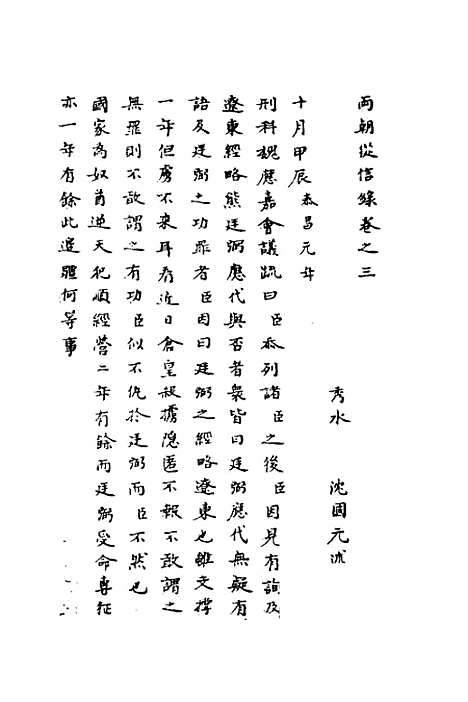 兩朝從信錄卷之三
秀水 沈國元述
十月甲辰泰昌元年
刑科魏應嘉會議疏曰臣忝列諸臣之後臣因見有詢及
遼東經略熊廷弼應代與否者衆皆曰廷弼應代無疑有
語及廷弼之功罪者臣因曰廷弼之經略遼東也雖支撐
一年但虜不來耳看近日倉皇殺擄隱匿不報不敢謂之
無罪則不敢謂之有功臣似不仇於廷弼而臣不然也
國家為奴酋逆天犯順經營二年有餘而廷弼受命專征
亦一年有餘此邊疆何等事